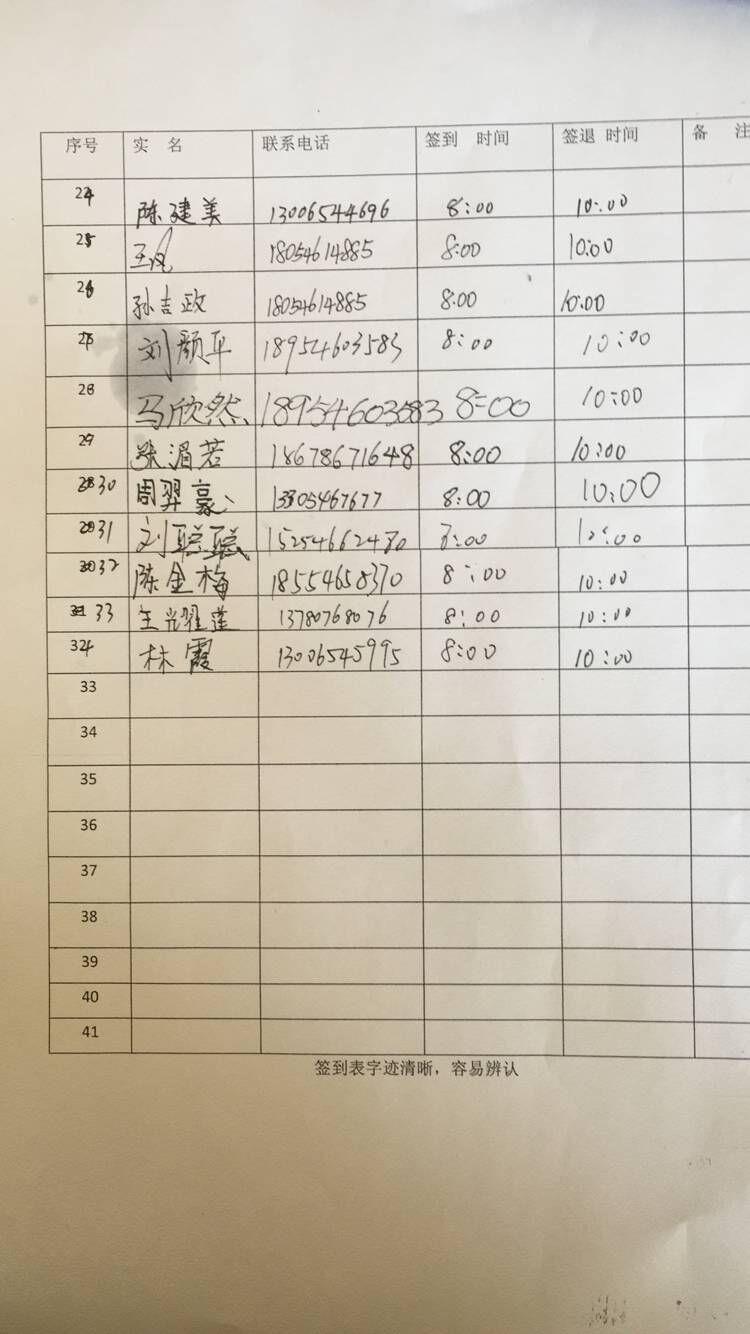 序号 实 名 联系电话 签到 时间 签退 时间 备 注
24 陈建美 13006544696 8:00 10:00
25 王凤 18054614885 8:00 10:00
26 孙吉政 18054614885 8:00 10:00
27 刘颜平 18954603583 8:00 10:00
28 马欣然 18954603583 8:00 10:00
29 张湄若 18678671648 8:00 10:00
30 周羿豪 13305467677 8:00 10:00
31 刘聪聪 15254662480 8:00 10:00
32 陈金梅 18554658370 8:00 10:00
33 13780768076 8:00 10:00
34 林霞 13006545995 8:00 10:00
33
34
35
36
37
38
39
40
41
签到表字迹清晰，容易辨认